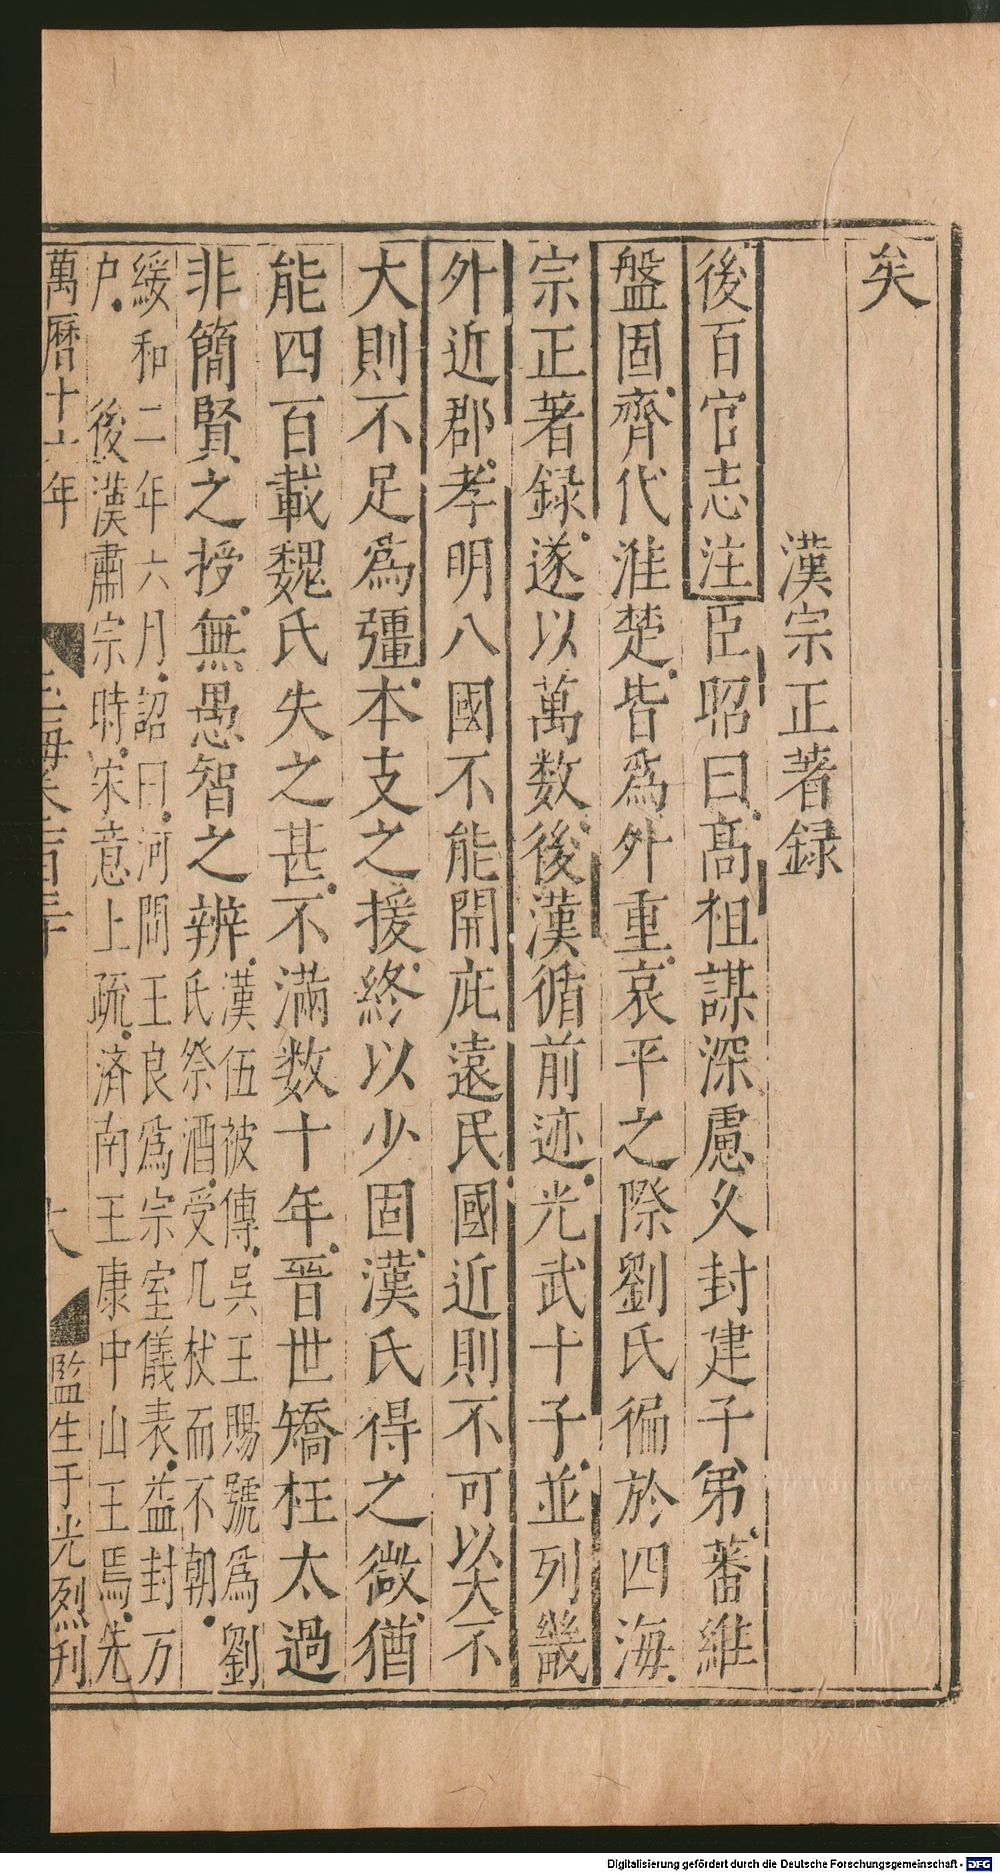 矣
漢宗正著録
後百官志注臣昭曰髙祖謀深慮久封建子弟蕃維
盤固齊代淮楚皆爲外重哀平之際劉氏徧於四海
宗正著録遂以萬数後漢循前迹光武十子並列畿
外近郡孝明八國不能開庇遠民國近則不可以大不
大則不足爲彊本支之援終以少固漢氏得之微猶
能四百載魏氏失之甚不滿数十年晉世矯枉太過
非簡賢之授無愚智之辨
漢伍被傳吳王賜號爲劉
氏祭酒受几杖而不朝
綏和二年六月詔曰河間王良爲宗室儀表益封万
户 後漢肅宗時宋意上疏済南王康中山王焉先
萬曆十六年
監生于光烈刊
Digitalisierung gefördert durch die Deutsche Forschungsgemeinschaft - DFG